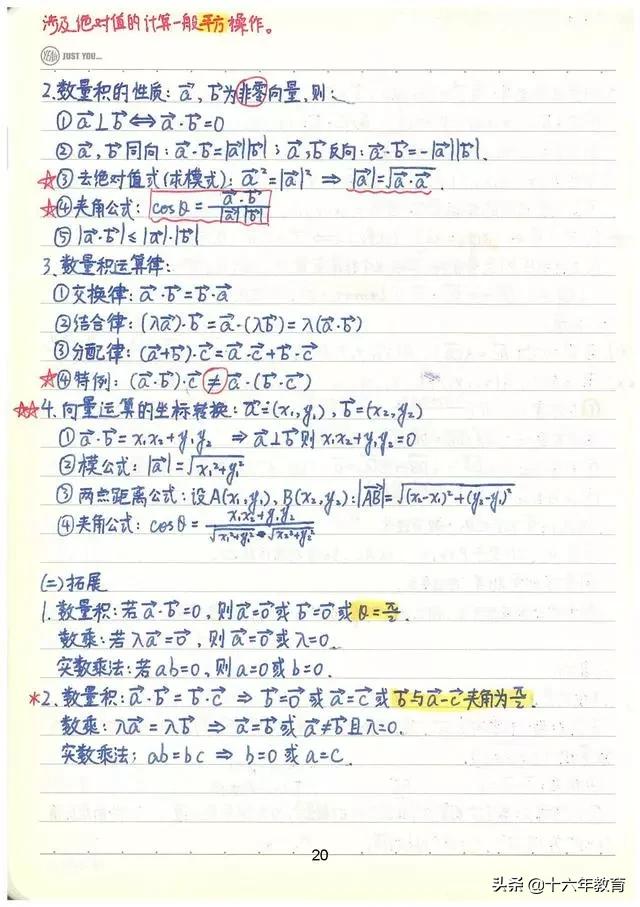 涉及绝对值的计算一般平方操作。
JUST YOU...
2.数量积的性质：a⃗, b⃗为非零向量，则：
①a⃗⊥b⃗⇔a⃗·b⃗=0
②a⃗, b⃗同向：a⃗·b⃗=|a⃗||b⃗|；a⃗,b⃗反向：a⃗·b⃗=-|a⃗||b⃗|.
☆③去绝对值式(求模式)：a⃗²=|a⃗|² ⇒ |a⃗|=√(a⃗·a⃗)
☆④夹角公式：cosθ=a⃗·b⃗/|a⃗||b⃗|
⑤|a⃗·b⃗|≤|a⃗|·|b⃗|
3.数量积运算律：
①交换律：a⃗·b⃗=b⃗·a⃗
②结合律：(λa⃗)·b⃗=a⃗·(λb⃗)=λ(a⃗·b⃗)
③分配律：(a⃗+b⃗)·c⃗=a⃗·c⃗+b⃗·c⃗
☆④特例：(a⃗·b⃗)·c⃗≠a⃗·(b⃗·c⃗)
☆☆4.向量运算的坐标转换：a⃗=(x₁,y₁), b⃗=(x₂,y₂)
①a⃗·b⃗=x₁x₂+y₁y₂ ⇒a⃗⊥b⃗则x₁x₂+y₁y₂=0
②模公式：|a⃗|=√(x₁²+y₁²)
③两点距离公式：设A(x₁,y₁), B(x₂,y₂)：|AB⃗|=√((x₂-x₁)²+(y₂-y₁)²)
④夹角公式：cosθ=(x₁x₂+y₁y₂)/(√(x₁²+y₁²)·√(x₂²+y₂²))
(二)拓展
1.数量积：若a⃗·b⃗=0，则a⃗=0⃗或b⃗=0⃗或θ=π/2.
数乘：若λa⃗=0⃗，则a⃗=0⃗或λ=0.
实数乘法：若ab=0，则a=0或b=0.
*2.数量积：a⃗·b⃗=b⃗·c⃗ ⇒ b⃗=0⃗或a⃗=c⃗或b⃗与a⃗-c⃗夹角为π/2.
数乘：λa⃗=λb⃗ ⇒ a⃗=b⃗或a⃗≠b⃗且λ=0.
实数乘法；ab=bc ⇒ b=0或a=c.
20
头条@十六年教育